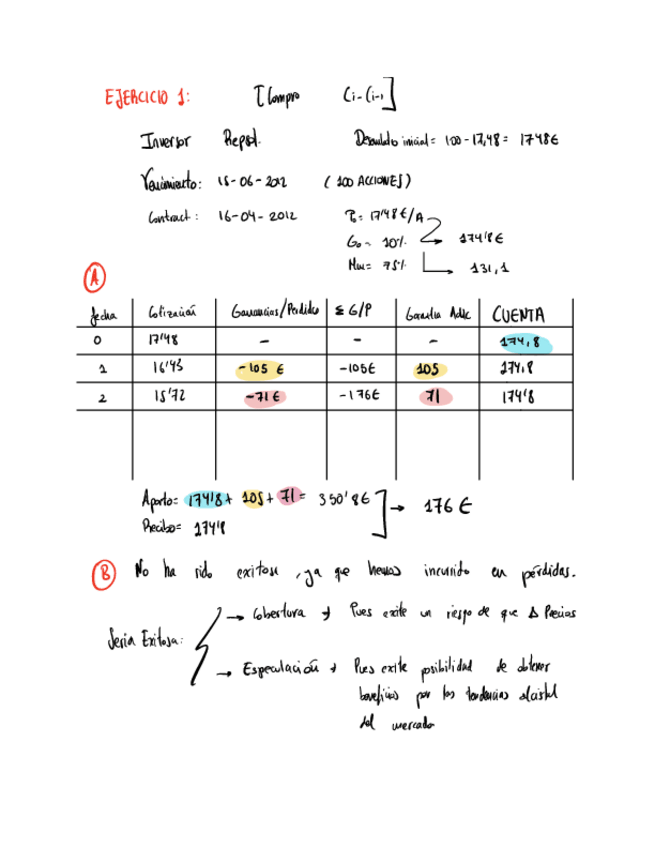 EJERCICIO 1: [Compro Ci-Ci-1]
Inversor Repsol. Desembolso inicial = 100 - 17,48 = 1748€
Vencimiento: 15-06-2012 (100 ACCIONES)
Contract: 16-04-2012 P₀ = 17'48€/A
G₀ = 10% 174'8€
Mm = 75% 131,1
A
fecha Cotización Ganancias/Perdidas Σ G/P Garantía Adic CUENTA
0 17'48 - - - 174,8
1 16'43 -105 € -105€ 105 174,8
2 15'72 -71€ -176€ 71 174'8
Aporto = 174'8 + 105 + 71 = 350'8€ → 176 €
Recibo = 174'8
B No ha sido exitosa, ya que hemos incurrido en pérdidas.
→ Cobertura → Pues exite un riesgo de que Δ Precios
Seria Exitosa:
→ Especulación → Pues exite posibilidad de obtener
beneficios por las tendencias alcista
del mercado